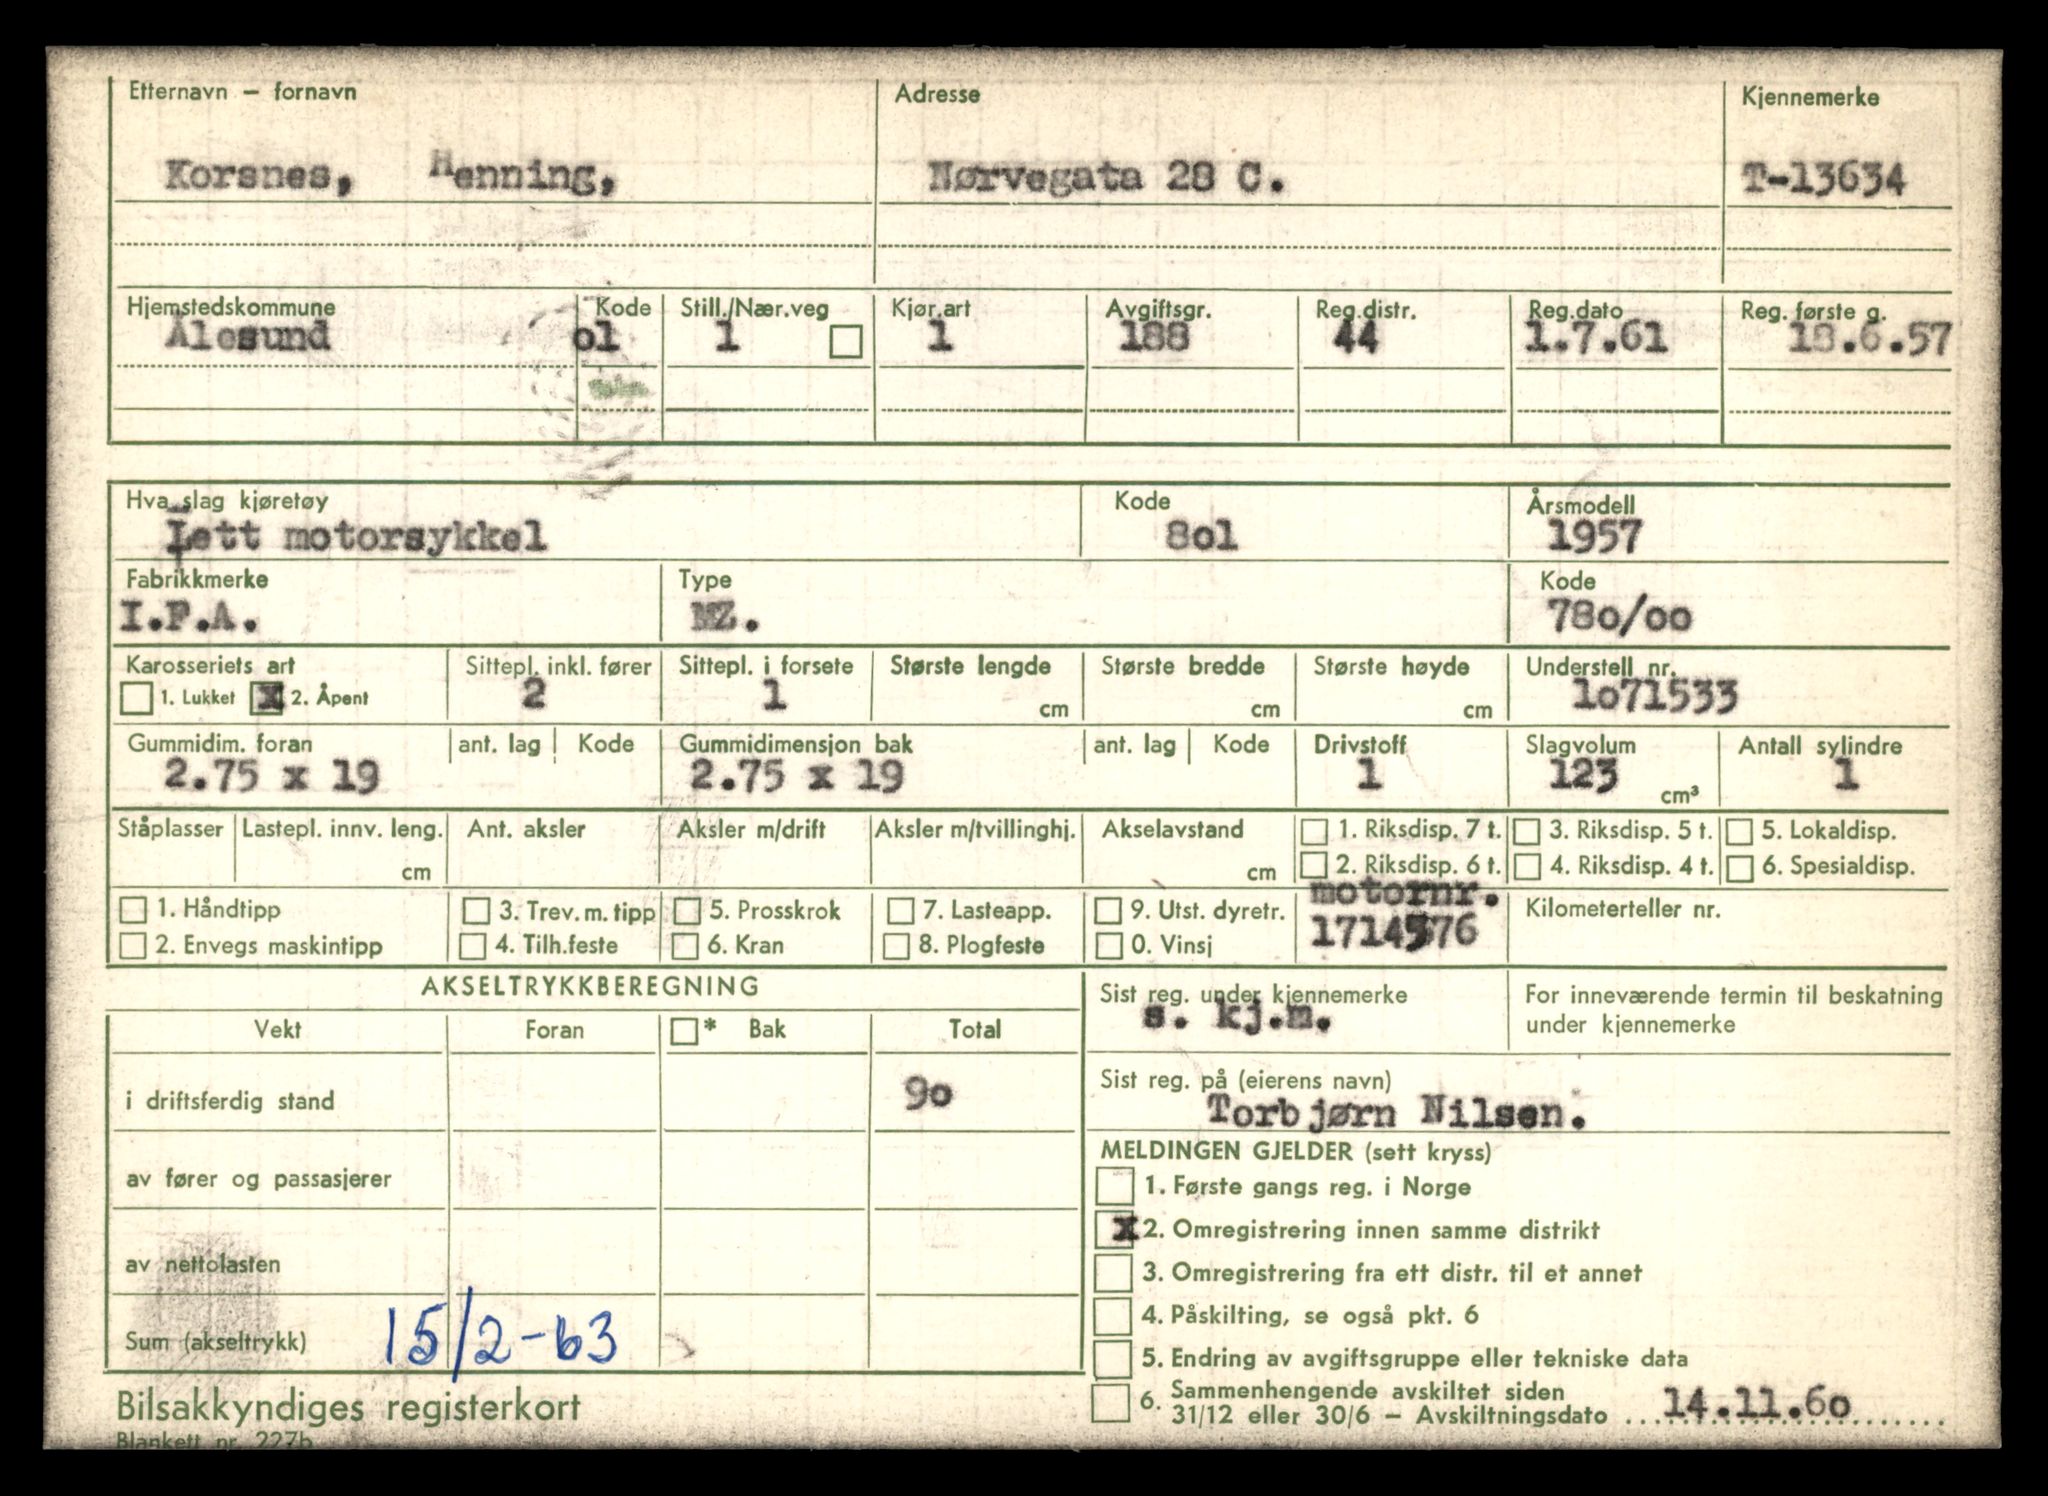 Etternavn – fornavn Adresse Kjennemerke
Korsnes, Henning, Nørvegata 28 C. T-13634
Hjemstedskommune Kode Still./Nær.veg Kjør.art Avgiftsgr. Reg.distr. Reg.dato Reg. første g.
Ålesund o1 1 1 188 44 1.7.61 18.6.57
Hva slag kjøretøy Kode Årsmodell
Lett motorsykkel 8o1 1957
Fabrikkmerke Type Kode
I.F.A. MZ. 78o/oo
Karosseriets art Sittepl. inkl. fører Sittepl. i forsete Største lengde Største bredde Største høyde Understell nr.
1. Lukket x 2. Åpent 2 1 cm cm cm 1o71533
Gummidim. foran ant. lag Kode Gummidimensjon bak ant. lag Kode Drivstoff Slagvolum Antall sylindre
2.75 x 19 2.75 x 19 1 123 cm³ 1
Ståplasser Lastepl. innv. leng. Ant. aksler Aksler m/drift Aksler m/tvillinghj. Akselavstand 1. Riksdisp. 7 t. 3. Riksdisp. 5 t. 5. Lokaldisp.
cm cm 2. Riksdisp. 6 t. 4. Riksdisp. 4 t. 6. Spesialdisp.
1. Håndtipp 3. Trev. m. tipp 5. Prosskrok 7. Lasteapp. 9. Utst. dyretr. motornr. Kilometerteller nr.
2. Envegs maskintipp 4. Tilh.feste 6. Kran 8. Plogfeste 0. Vinsj 1714576
AKSELTRYKKBEREGNING
Vekt Foran * Bak Total
i driftsferdig stand 9o
av fører og passasjerer
av nettolasten
Sum (akseltrykk) 15/2-63
Bilsakkyndiges registerkort
Blankett nr. 227b
Sist reg. under kjennemerke For inneværende termin til beskatning
s. kj.m. under kjennemerke
Sist reg. på (eierens navn)
Torbjørn Nilsen.
MELDINGEN GJELDER (sett kryss)
1. Første gangs reg. i Norge
x 2. Omregistrering innen samme distrikt
3. Omregistrering fra ett distr. til et annet
4. Påskilting, se også pkt. 6
5. Endring av avgiftsgruppe eller tekniske data
6. Sammenhengende avskiltet siden
31/12 eller 30/6 – Avskiltningsdato 14.11.6o